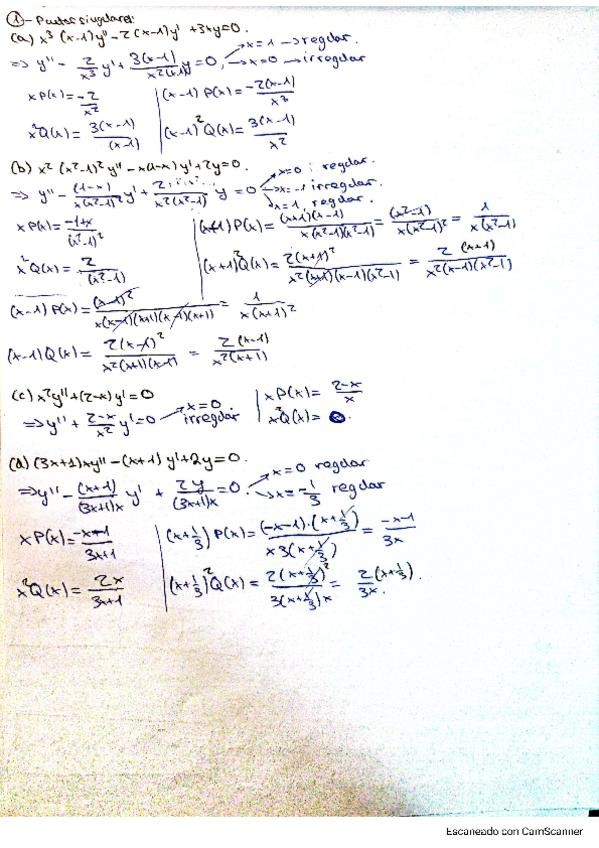 ①- Puntos singulares:
(a) x³ (x-1) y'' - 2(x-1) y' + 3xy = 0.
⇒ y'' - 2/x³ y' + 3(x-1)/x²(x-1) y = 0, → x=1 → regular.
→ x=0 → irregular
x P(x) = -2/x² | (x-1) P(x) = -2(x-1)/x³
x²Q(x) = 3(x-1)/(x-1) | (x-1)²Q(x) = 3(x-1)/x²
(b) x² (x²-1)² y'' - x(1-x) y' + 2y = 0.
⇒ y'' - (1-x)/x(x²-1)² y' + 2/x²(x²-1) y = 0 → x=0 : regular.
→ x=-1 irregular.
→ x=1, regular.
x P(x) = -1+x/(x²-1)² | (x+1) P(x) = (x+1)(x-1)/x(x²-1)(x²-1) = (x²-1)/x(x²-1)² = 1/x(x²-1)
x²Q(x) = 2/(x²-1) | (x+1)²Q(x) = 2(x+1)²/x²(x+1)(x-1)(x²-1) = 2(x+1)/x²(x-1)(x²-1)
(x-1) P(x) = (x-1)²/x(x-1)(x+1)(x-1)(x+1) = 1/x(x+1)²
(x-1)Q(x) = 2(x-1)²/x²(x+1)(x-1) = 2(x-1)/x²(x+1)
(c) x²y'' + (2-x) y' = 0 | x P(x) = 2-x/x
⇒ y'' + 2-x/x² y' = 0 → x=0. irregular | x²Q(x) = 0.
(d) (3x+1)xy'' - (x+1) y' + 2y = 0.
⇒ y'' - (x+1)/(3x+1)x y' + 2y/(3x+1)x = 0. → x=0 regular
→ x=-1/3 regular
x P(x) = -x-1/3x+1 | (x+1/3) P(x) = (-x-1)·(x+1/3)/x3(x+1/3) = -x-1/3x
x²Q(x) = 2x/3x+1 | (x+1/3)²Q(x) = 2(x+1/3)²/3(x+1/3)x = 2/3x (x+1/3).
Escaneado con CamScanner